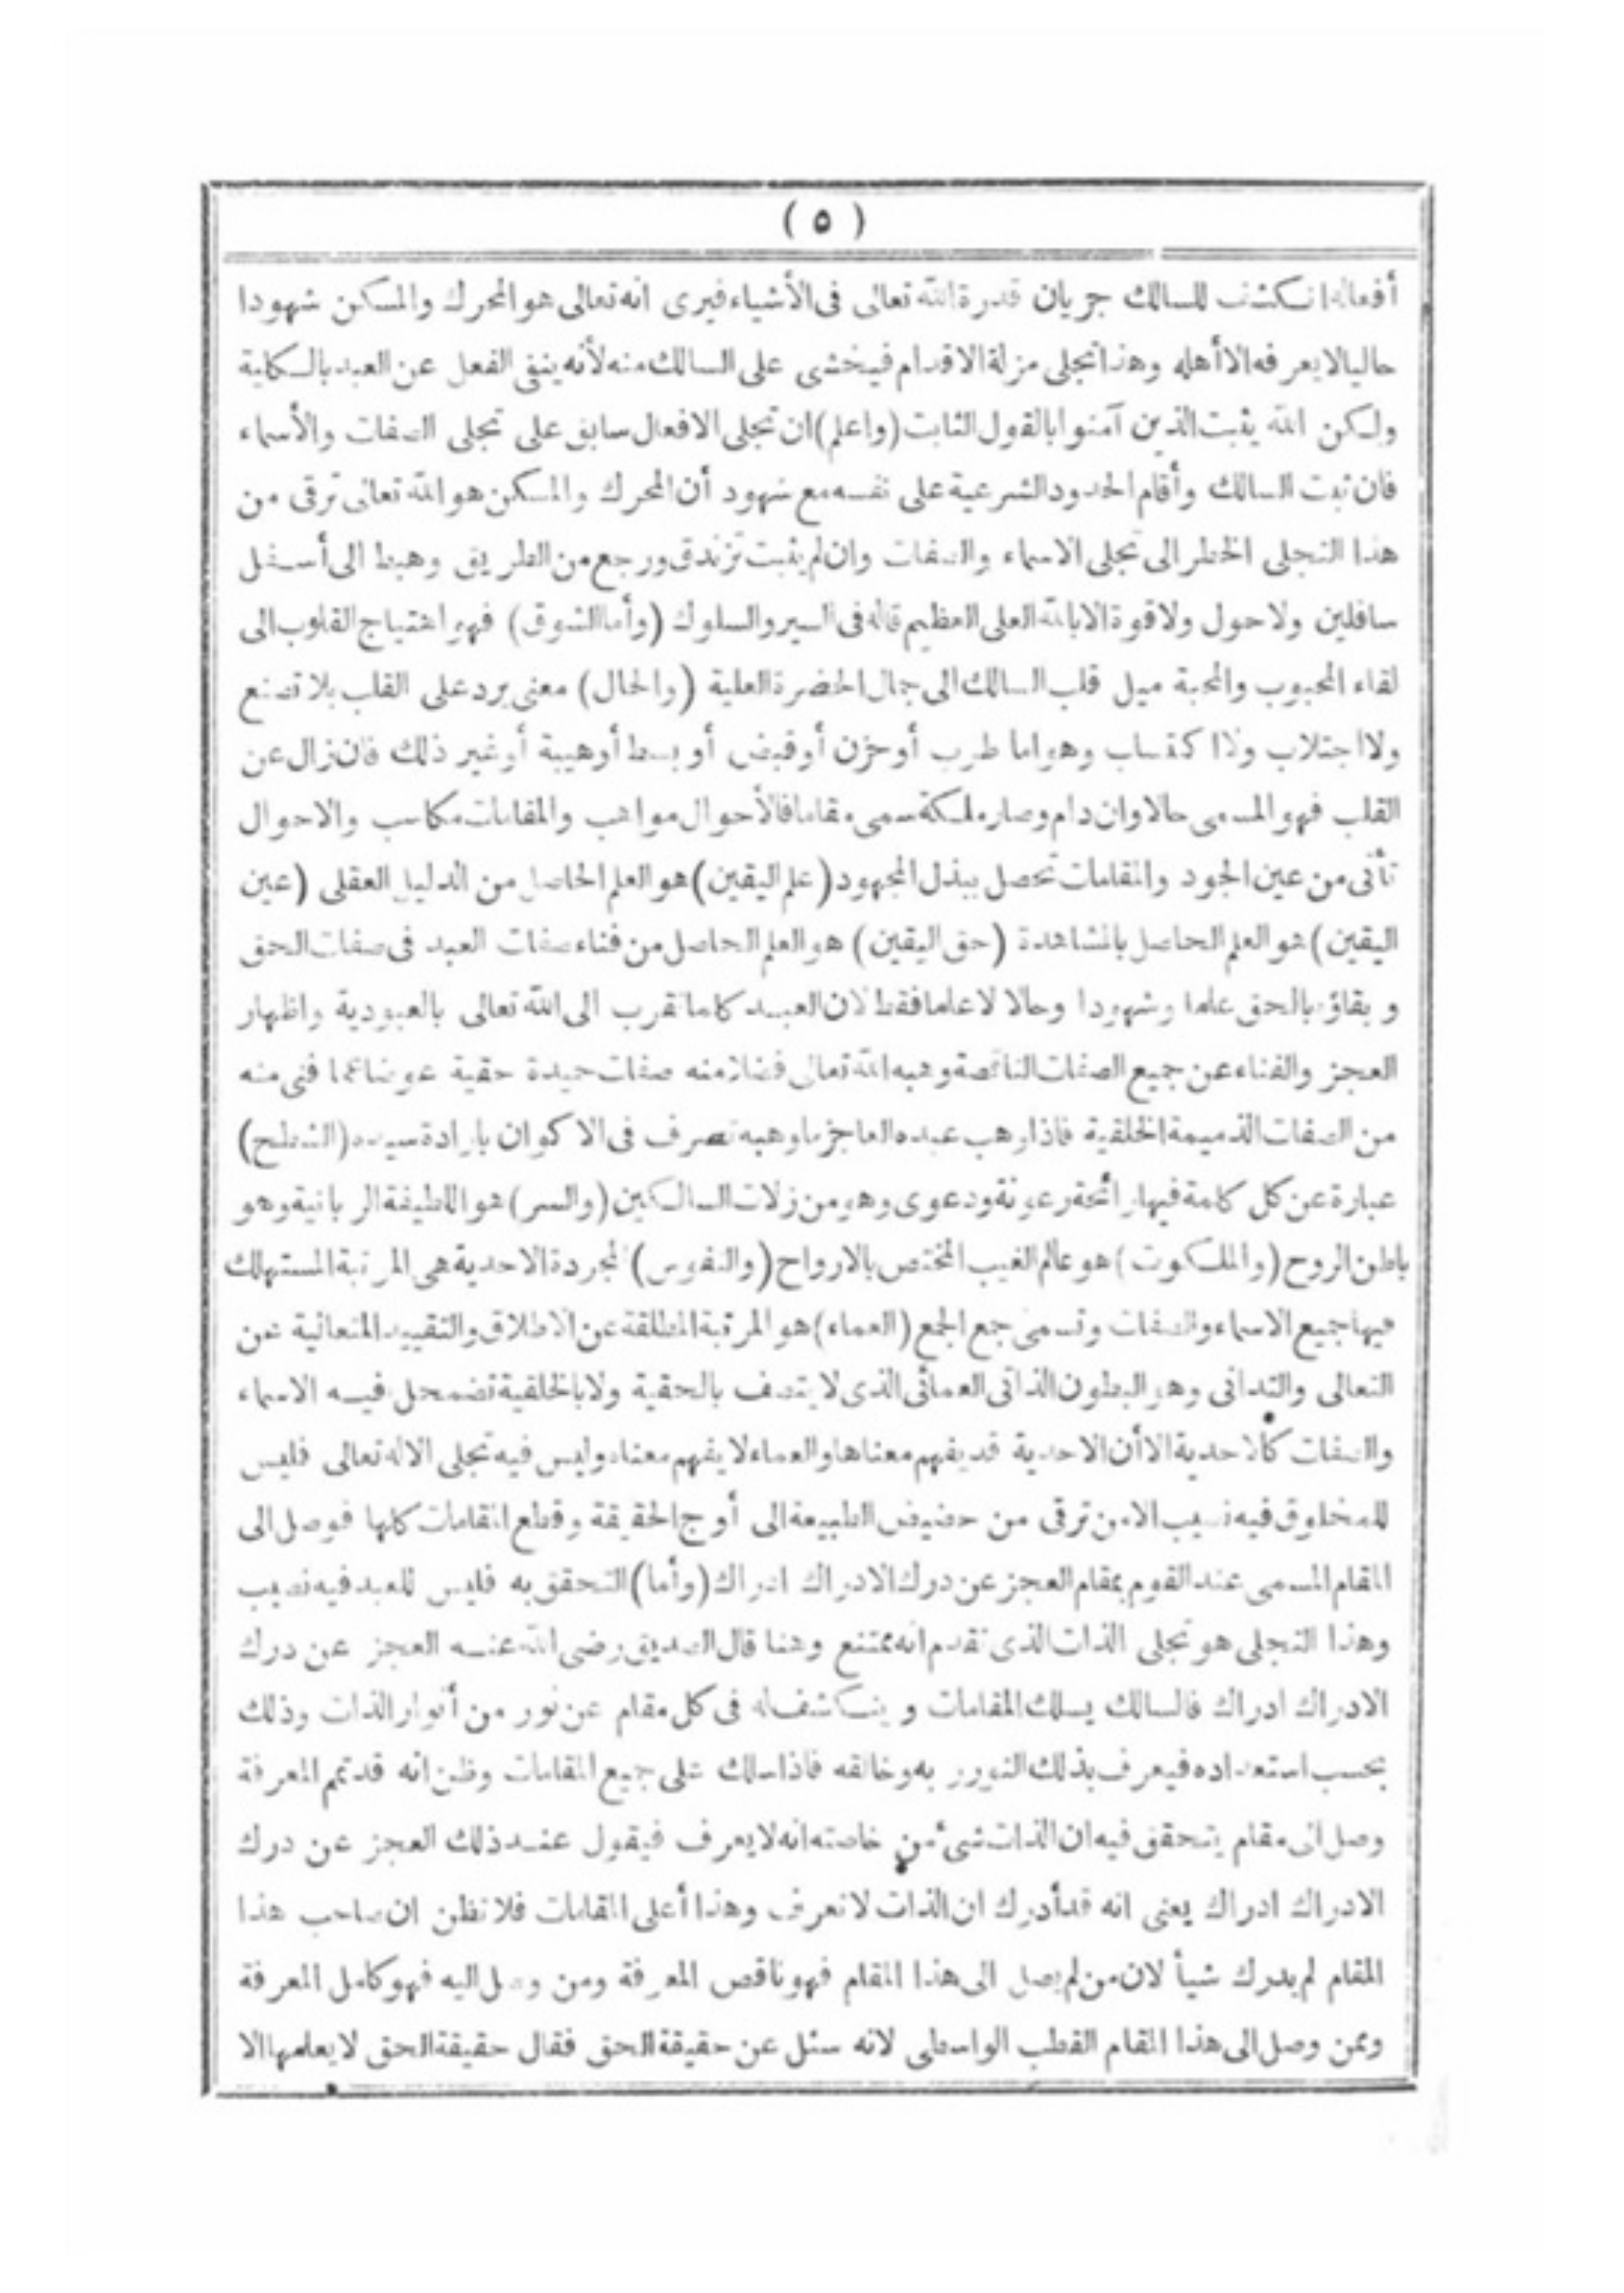 ( ٥ )
أفعاله انكشف للسالك جريان قدرة الله تعالى فى الأشياء فيرى انه تعالى هو المحرك والمسكن شهودا
حاليا لا يعرفه الا أهله وهذا تجلى مزلة الاقدام فيخشى على السالك منه لأنه ينفى الفعل عن العبد بالكلية
ولكن الله يثبت الذين آمنوا بالقول الثابت (واعلم) ان تجلى الافعال سابق على تجلى الصفات والأسماء
فان ثبت السالك وأقام الحدود الشرعية على نفسه مع شهود أن المحرك والمسكن هو الله تعالى ترقى من
هذا التجلى الخطر الى تجلى الاسماء والصفات وان لم يثبت تزندق ورجع من الطريق وهبط الى أسفل
سافلين ولا حول ولا قوة الا بالله العلى العظيم قاله فى السير والسلوك (وأما الشوق) فهو اهتياج القلوب الى
لقاء المحبوب والمحبة ميل قلب السالك الى جمال الحضرة العلية (والحال) معنى يرد على القلب بلا تصنع
ولا اجتلاب ولا اكتساب وهو اما طرب أو حزن أو قبض أو بسط أو هيبة أو غير ذلك فان زال عن
القلب فهو المسمى حالا وان دام وصار ملكة سمى مقاما فالأحوال مواهب والمقامات مكاسب والاحوال
تأتى من عين الجود والمقامات تحصل ببذل المجهود (علم اليقين) هو العلم الحاصل من الدليل العقلى (عين
اليقين) هو العلم الحاصل بالمشاهدة (حق اليقين) هو العلم الحاصل من فناء صفات العبد فى صفات الحق
و بقاؤه بالحق علما وشهودا وحالا لا علما فقط لان العبد كلما تقرب الى الله تعالى بالعبودية واظهار
العجز والفناء عن جميع الصفات الناقصة وهبه الله تعالى فضلا منه صفات حميدة حقية عوضا عما فنى منه
من الصفات الذميمة الخلقية فاذا وهب عبده العاجز ما وهبه تصرف فى الاكوان بارادة سيده (الشطح)
عبارة عن كل كلمة فيها رائحة رعونة ودعوى وهو من زلات السالكين (والسر) هو اللطيفة الربانية وهو
باطن الروح (والملكوت) هو عالم الغيب المختص بالارواح (والنفوس) المجردة الاحدية هى المرتبة المستهلك
فيها جميع الاسماء والصفات وتسمى جمع الجمع (العماء) هو المرتبة المطلقة عن الاطلاق والتقييد المتعالية عن
التعالى والتدانى وهو البطون الذاتى العمائى الذى لا يتصف بالحقية ولا بالخلقية تضمحل فيه الاسماء
والصفات كالاحدية الا أن الاحدية قد يفهم معناها والعماء لا يفهم معناه وليس فيه تجلى الا له تعالى فليس
للمخلوق فيه نصيب الا من ترقى من حضيض الطبيعة الى أوج الحقيقة وقطع المقامات كلها فوصل الى
المقام المسمى عند القوم بمقام العجز عن درك الادراك ادراك (وأما) التحقق به فليس للعبد فيه نصيب
وهذا التجلى هو تجلى الذات الذى تقدم انه ممتنع وهنا قال الصديق رضى الله عنه العجز عن درك
الادراك ادراك فالسالك يسلك المقامات و ينكشف له فى كل مقام عن نور من أنوار الذات وذلك
بحسب استعداده فيعرف بذلك النور ربه وخالقه فاذا سلك على جميع المقامات وظن انه قد تم المعرفة
وصل الى مقام يتحقق فيه ان الذات شئ من خاصته انه لا يعرف فيقول عند ذلك العجز عن درك
الادراك ادراك يعنى انه قد أدرك ان الذات لا تعرف وهذا أعلى المقامات فلا تظن ان صاحب هذا
المقام لم يدرك شيأ لان من لم يصل الى هذا المقام فهو ناقص المعرفة ومن وصل اليه فهو كامل المعرفة
وممن وصل الى هذا المقام القطب الواسطى لانه سئل عن حقيقة الحق فقال حقيقة الحق لا يعلمها الا